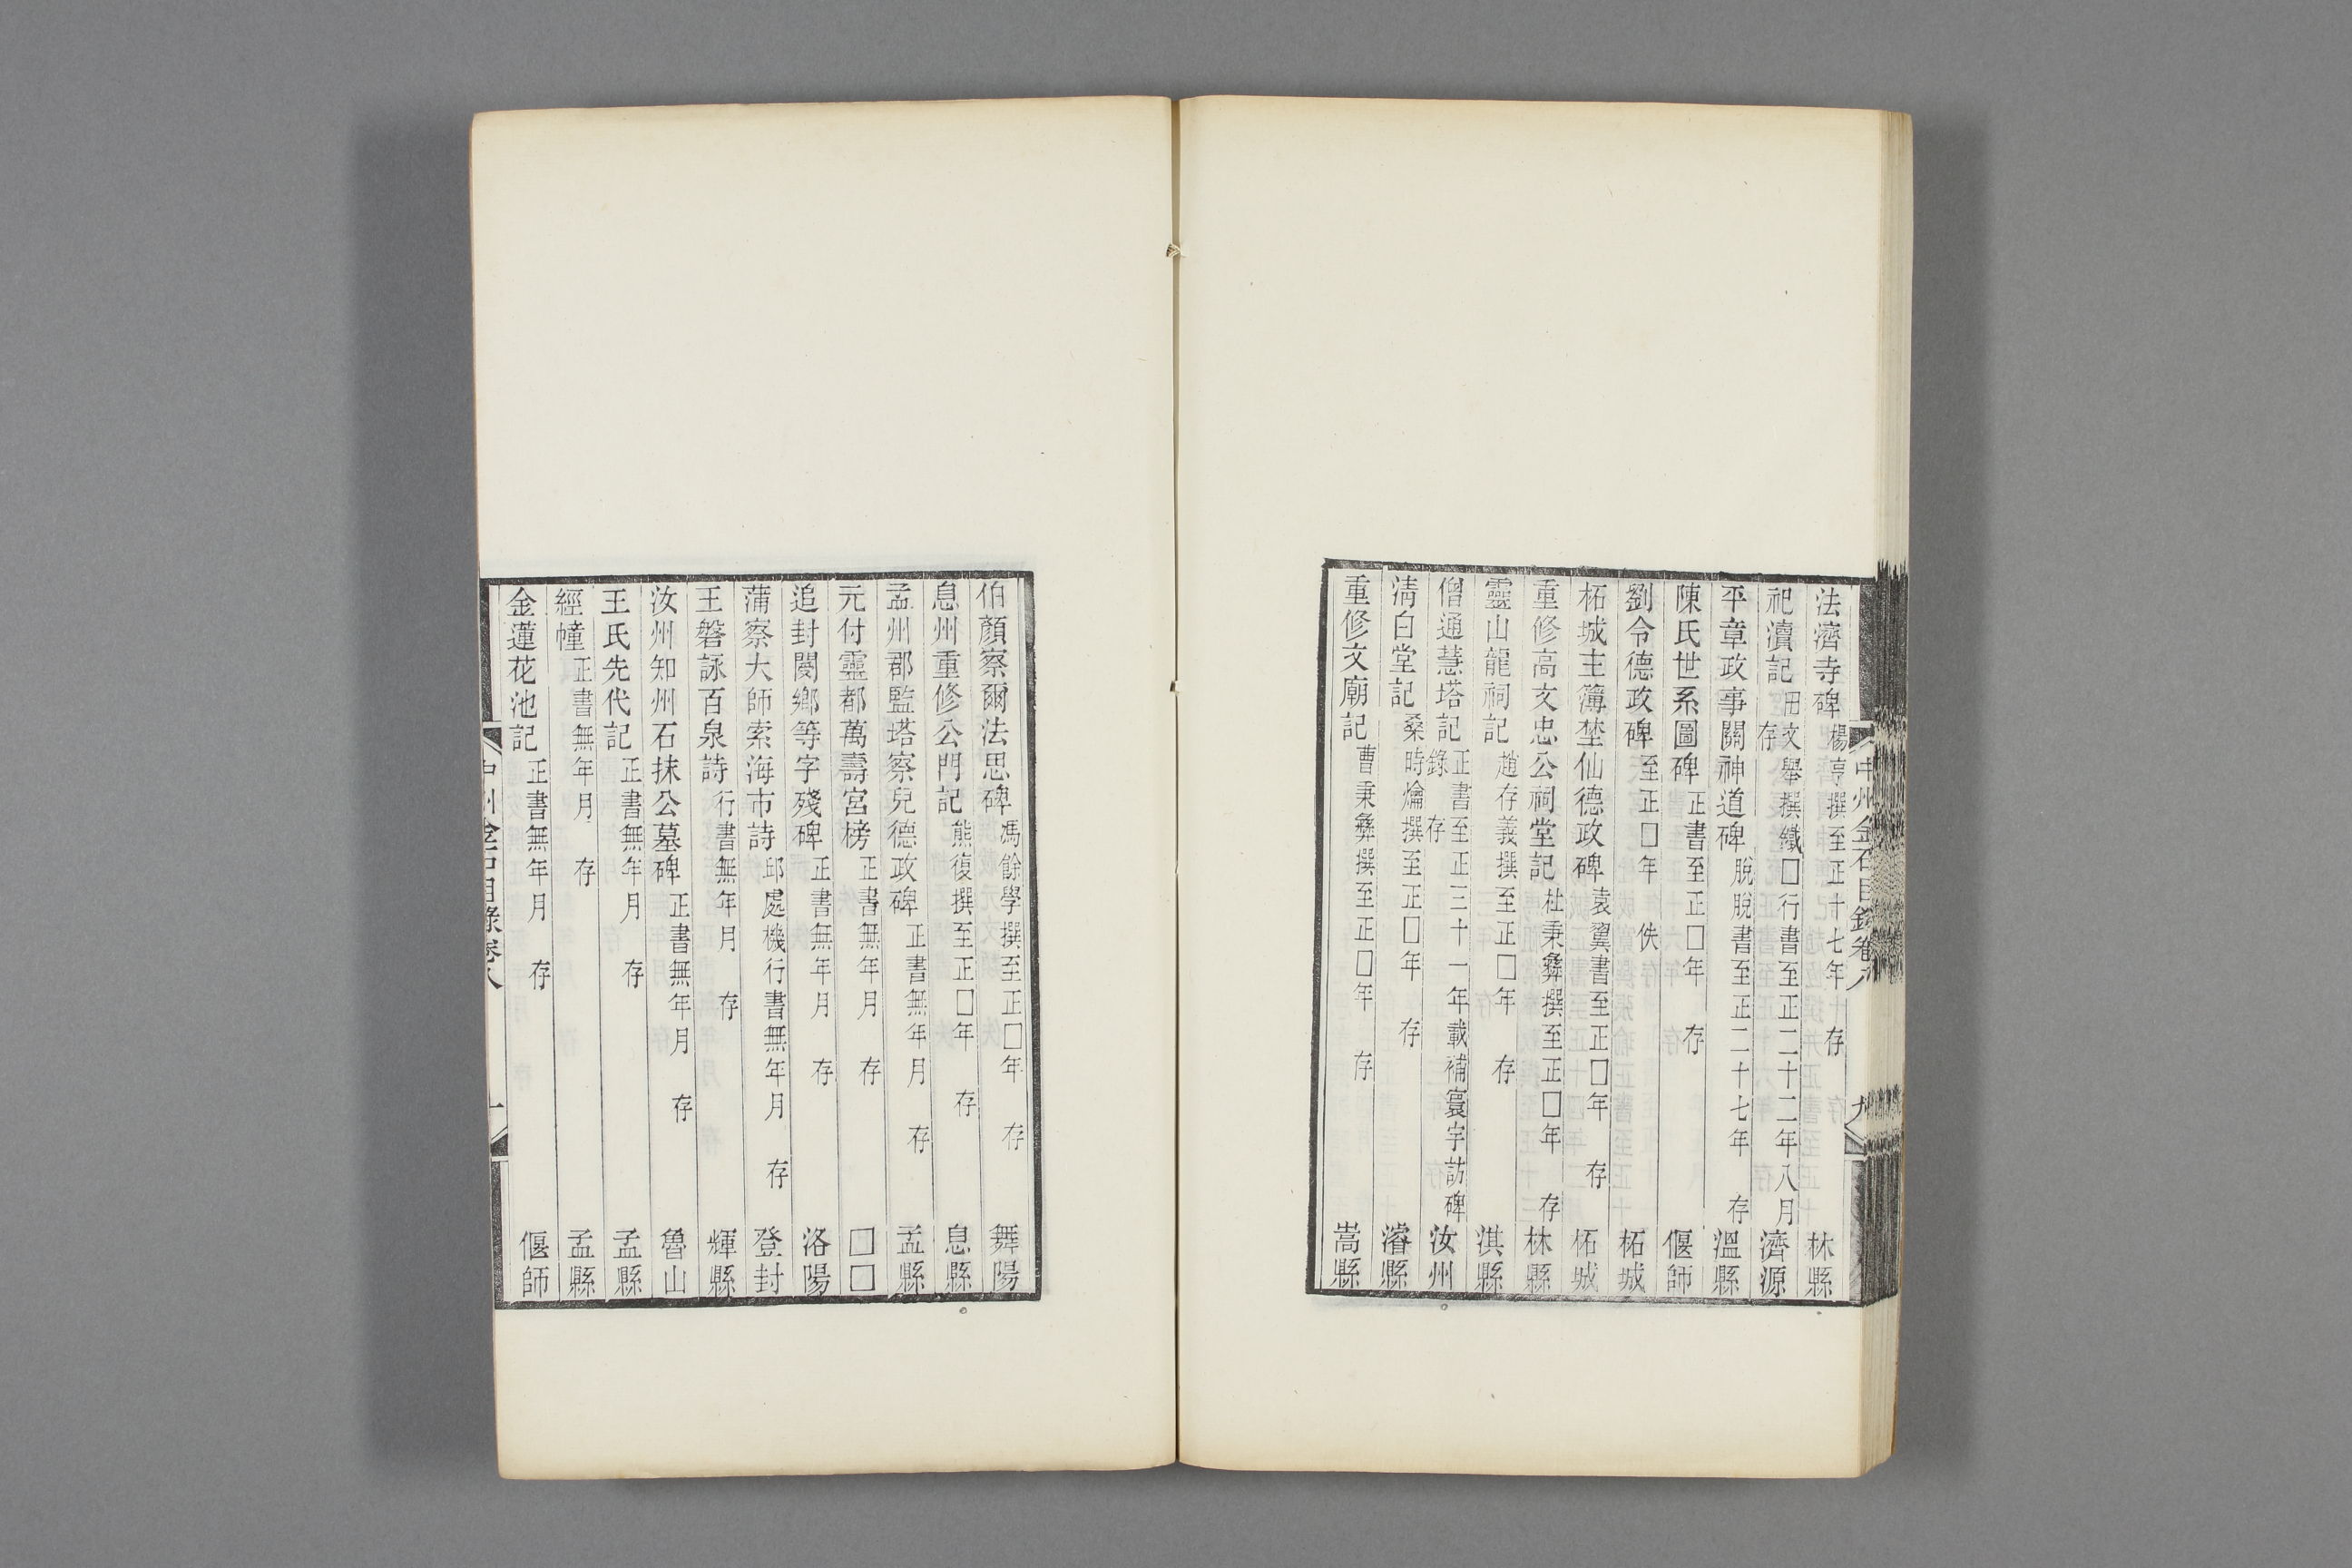 中州金石目錄卷八 九
法濟寺碑 楊亨撰至正十七年 存 林縣
祀瀆記 田文舉撰纖□行書至正二十二年八月存 濟源
平章政事關神道碑 脫脫書至正二十七年 存 溫縣
陳氏世系圖碑 正書至正□年 存 偃師
劉令德政碑 至正□年 佚 柘城
柘城主簿埜仙德政碑 袁翼書至正□年 存 柘城
重修高文忠公祠堂記 杜秉彝撰至正□年 存 林縣
靈山龍祠記 趙存義撰至正□年 存 淇縣
僧通慧塔記 正書至正三十一年載補寰宇訪碑錄 存 汝州
清白堂記 桑時爚撰至正□年 存 濬縣
重修文廟記 曹秉彝撰至正□年 存 嵩縣
伯顏察爾法思碑 馮餘學撰至正□年 存 舞陽
息州重修公門記 熊復撰至正□年 存 息縣
孟州郡監塔察兒德政碑 正書無年月 存 孟縣
元付靈都萬壽宮榜 正書無年月 存 □□
追封閿鄉等字殘碑 正書無年月 存 洛陽
蒲察大師索海市詩 邱處機行書無年月 存 登封
王磐詠百泉詩 行書無年月 存 輝縣
汝州知州石抹公墓碑 正書無年月 存 魯山
王氏先代記 正書無年月 存 孟縣
經幢 正書無年月 存 孟縣
金蓮花池記 正書無年月 存 偃師
中州金石目錄卷八